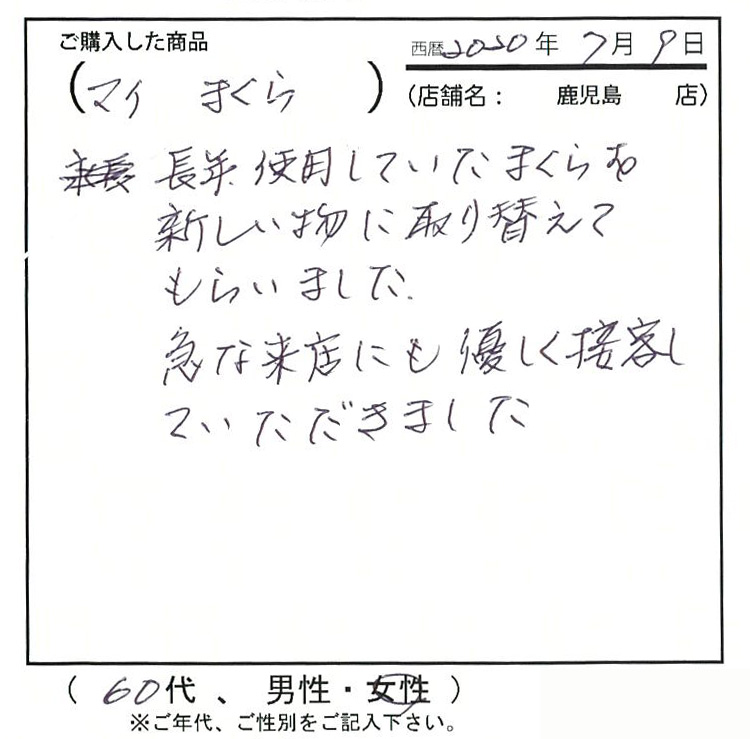 ご購入した商品
(マイ まくら)
西暦2020年 7月 9日
(店舗名: 鹿児島 店)
長年使用していたまくらを
新しい物に取り替えて
もらいました.
急な来店にも優しく接客し
ていただきました
(60代、男性・女性)
※ご年代、ご性別をご記入下さい。